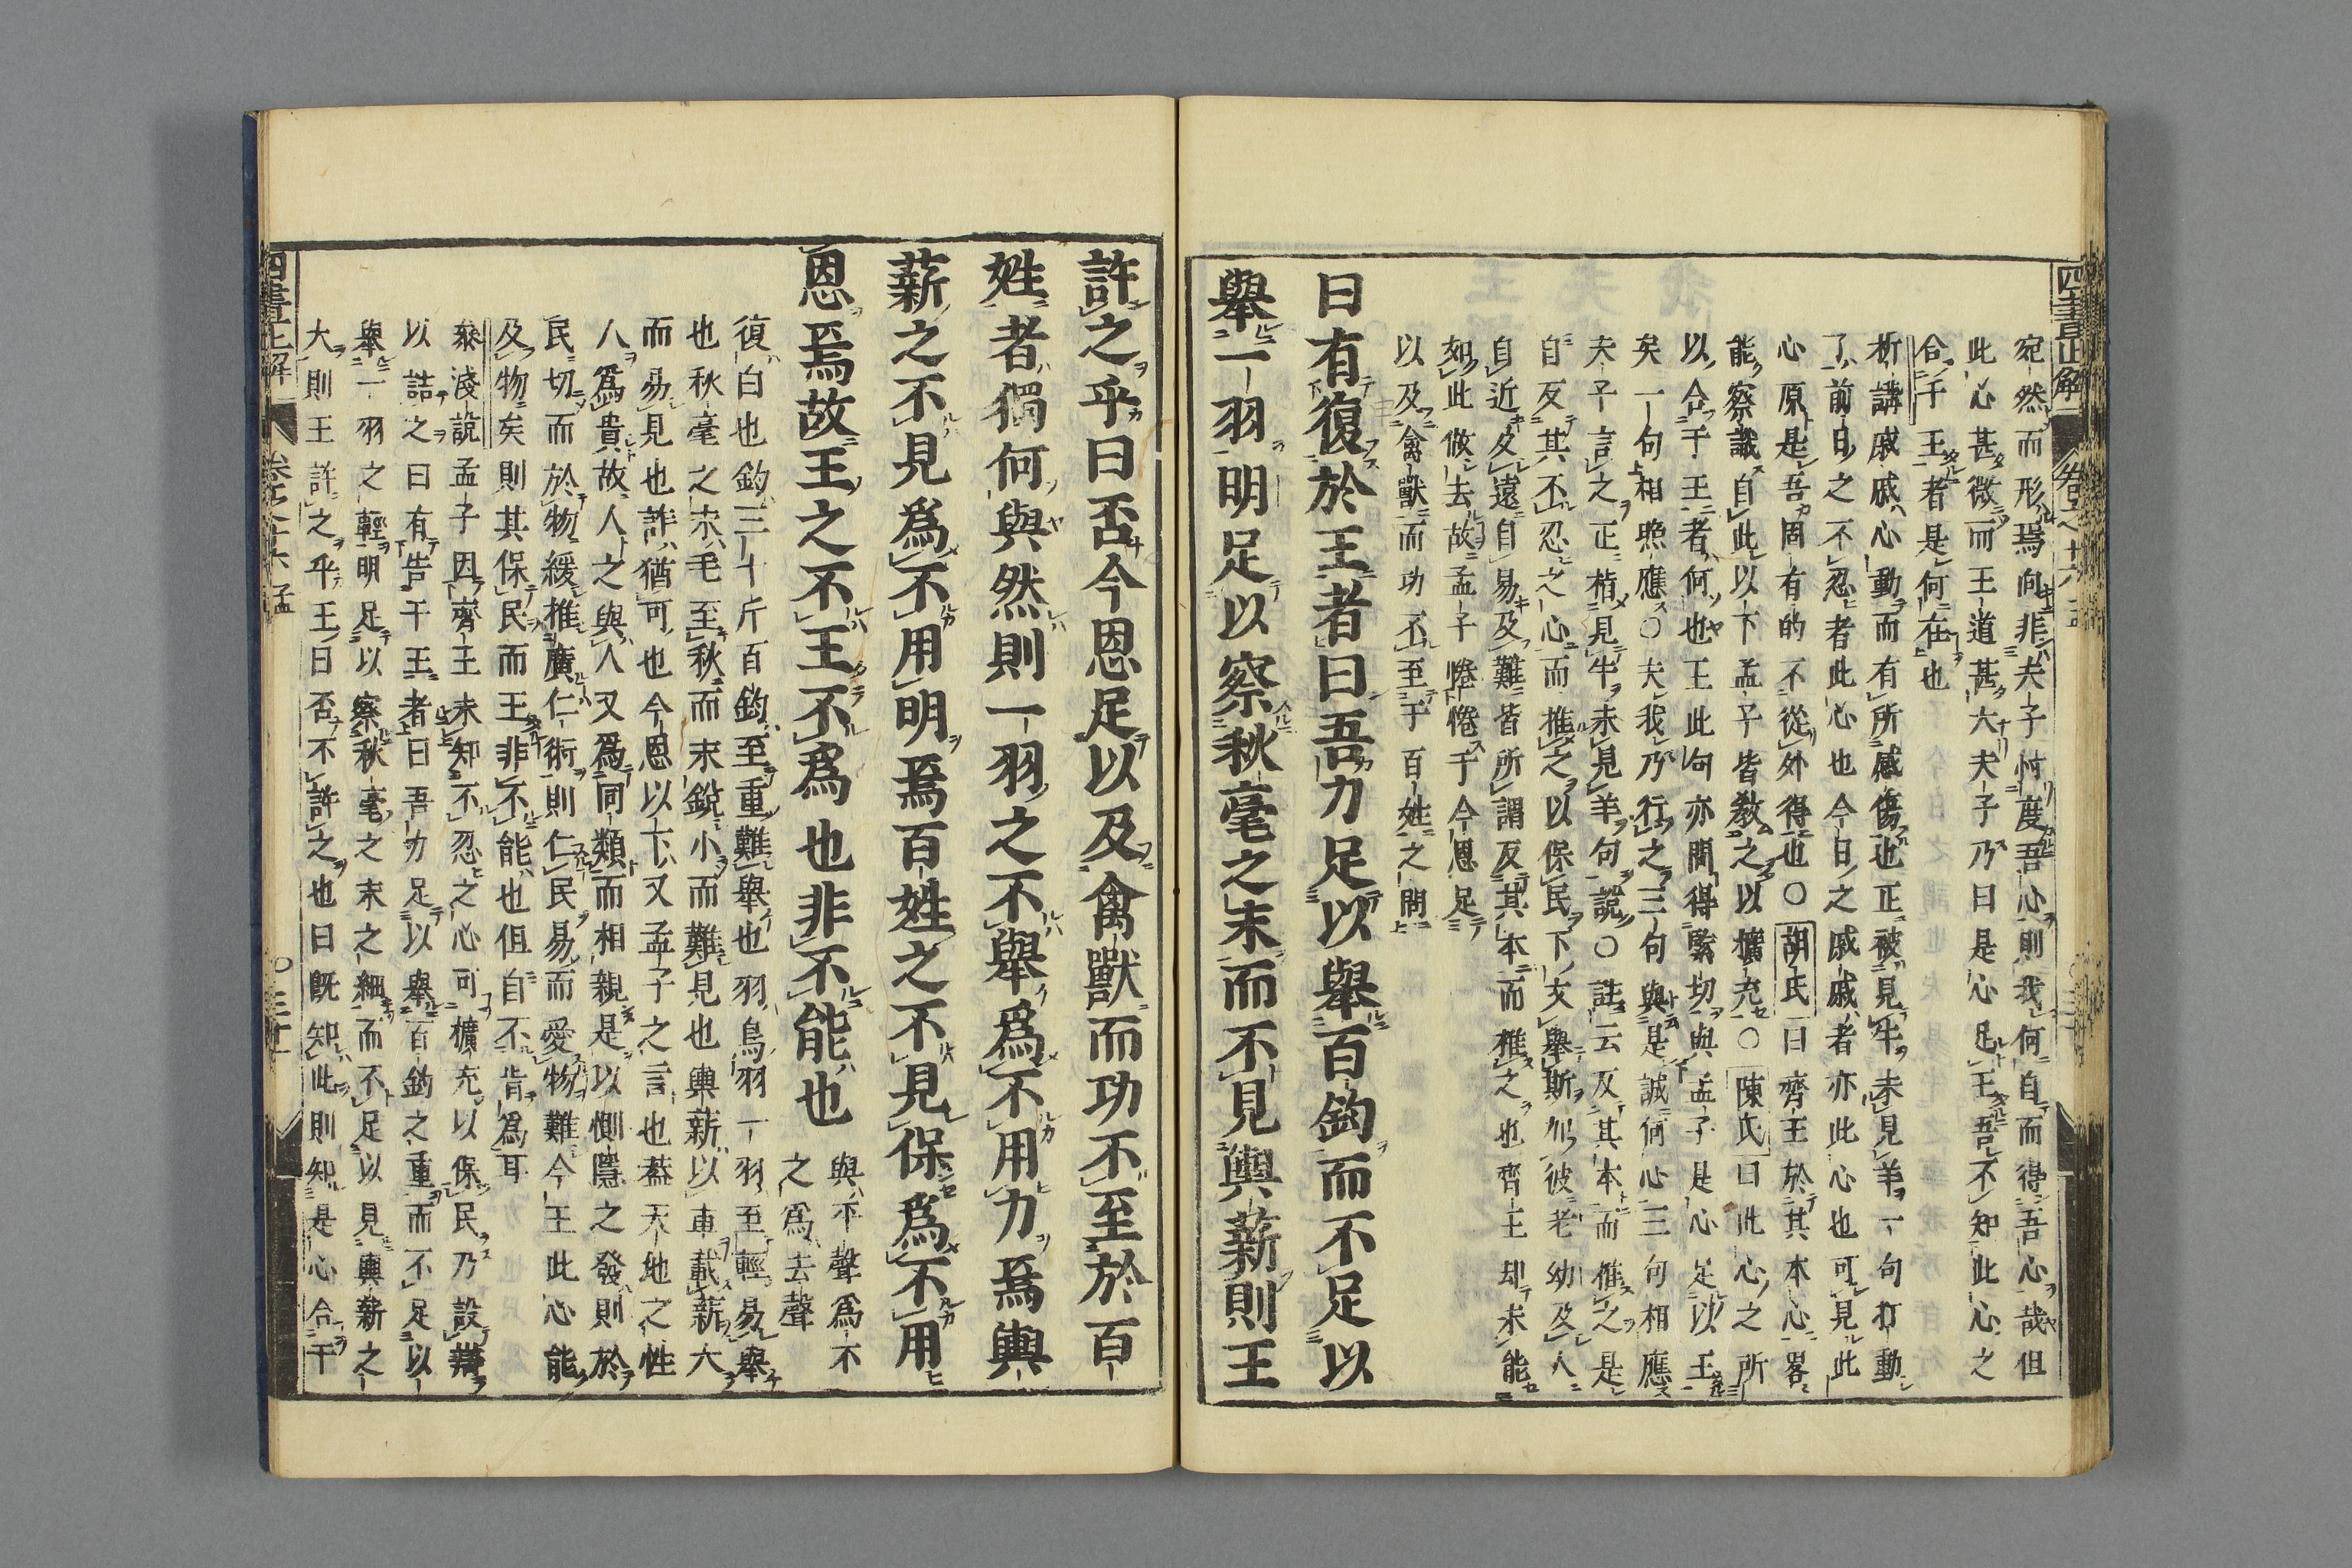 四書正解
宛然而形焉向非夫子忖度吾心則我何自而得吾心哉但
此心甚微而王道甚大夫子乃曰是心足王吾不知此心之
合于王者是何在也
析講戚戚心動而有所感傷也正被見牛未見羊一句打動
了前日之不忍者此心也今日之戚戚者亦此心也可見此
心原是吾固有的不從外得也○胡氏曰齊王於其本心畧
能察識自此以下孟子皆教之以擴充○陳氏曰此心之所
以合于王者何也王此句亦問得緊切與孟子是心足以王
矣一句相照應○夫我乃行之三句與是誠何心三句相應
夫子言之正指見牛未見羊句說○註云反其本而推之是
自反其不忍之心而推之以保民下文舉斯加彼老幼及人
自近及遠自易及難皆所謂反其本而推之也齊王却未能
如此做去故孟子惓惓于今恩足
以及禽獸而功不至于百姓之問
曰有復於王者曰吾力足以舉百鈞而不足以
舉一羽明足以察秋毫之末而不見輿薪則王
許之乎曰否今恩足以及禽獸而功不至於百
姓者獨何與然則一羽之不舉爲不用力焉輿
薪之不見爲不用明焉百姓之不見保爲不用
恩焉故王之不王不爲也非不能也
與平聲爲不
之爲去聲
復白也鈞三十斤百鈞至重難舉也羽鳥羽一羽至輕易舉
也秋毫之末毛至秋而末銳小而難見也輿薪以車載薪大
而易見也許猶可也今恩以下又孟子之言也蓋天地之性
人爲貴故人之與人又爲同類而相親是以惻隱之發則於
民切而於物緩推廣仁術則仁民易而愛物難今王此心能
及物矣則其保民而王非不能也但自不肯爲耳
叅淺說孟子因齊王未知不忍之心可擴充以保民乃設辭
以詰之曰有告于王者曰吾力足以舉百鈞之重而不足以
舉一羽之輕明足以察秋毫之末之細而不足以見輿薪之
大則王許之乎王曰否不許之也曰旣知此則知是心合于
四書正解